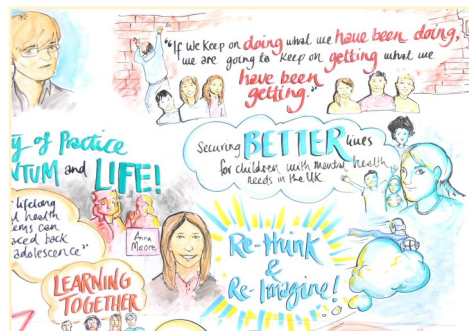 "If we keep on doing what we have been doing,
we are going to keep on getting what we
have been
getting."
y of Practice
NTUM and LIFE!
Securing BETTER lives
for children with mental health
needs in the UK
lifelong
l health
ems can
aced back
adolescence"
Anna
Moore
Re-think
&
Re-Imagine!
LEARNING
TOGETHER